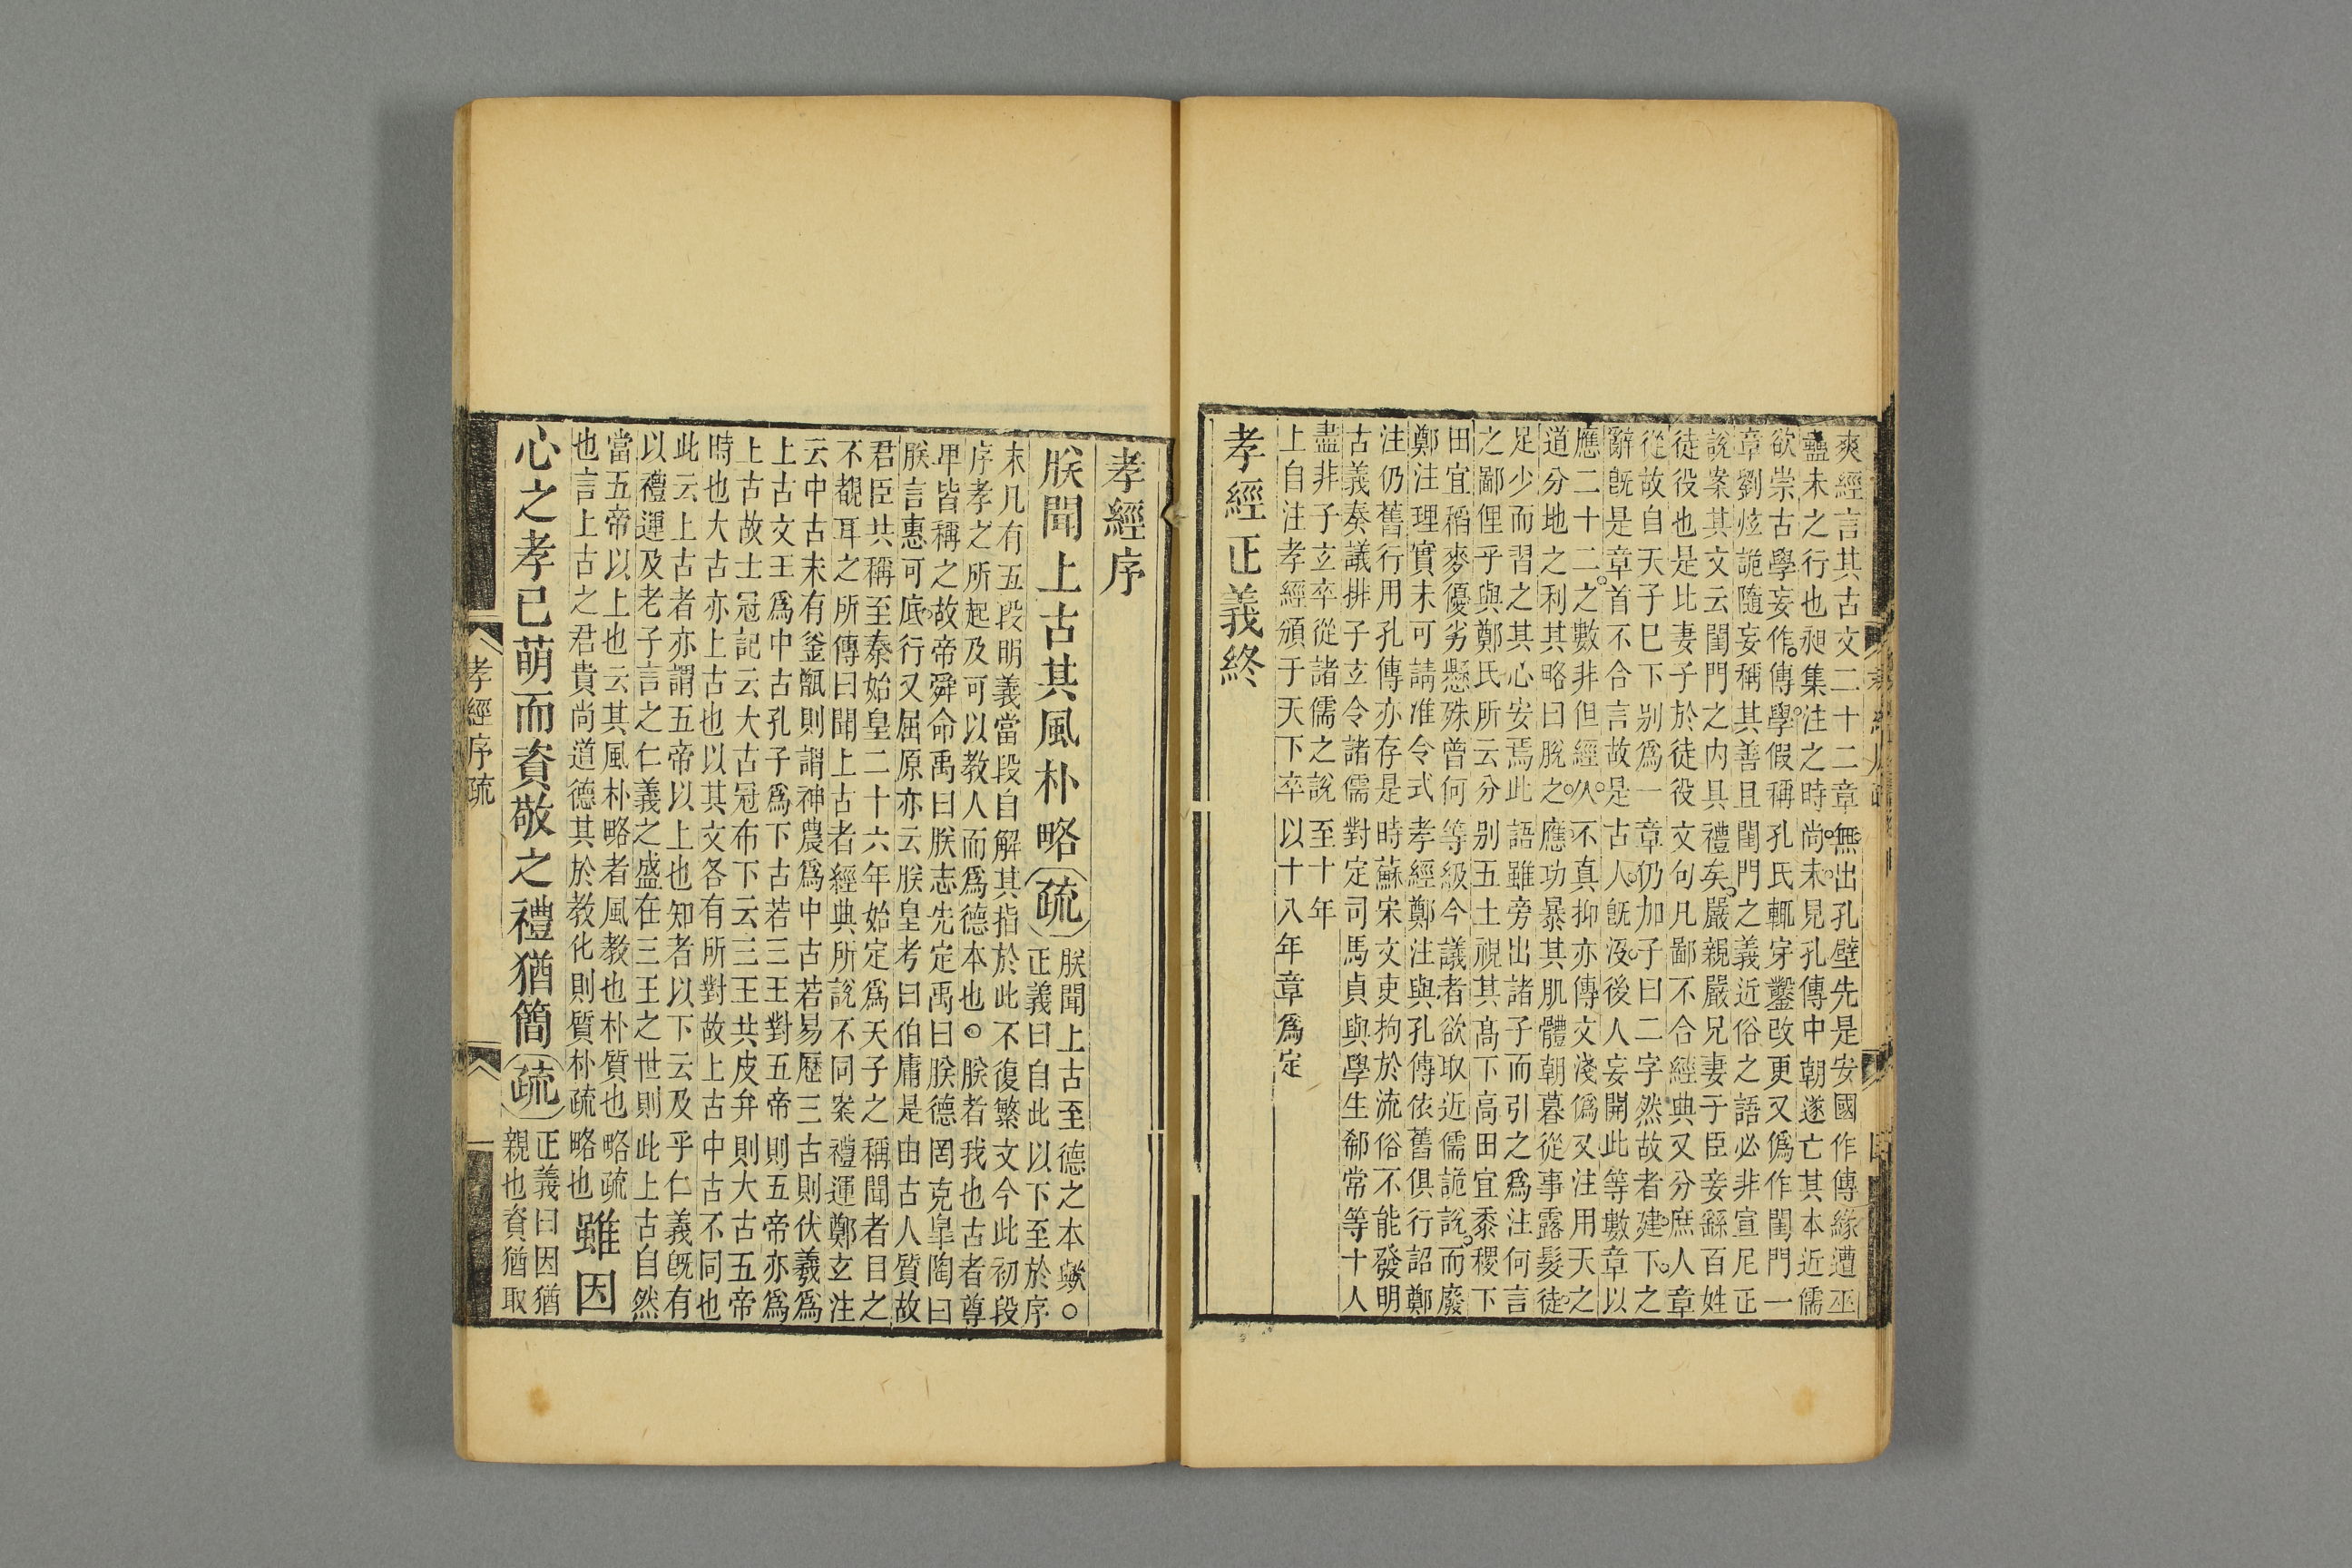 爽經言其古文二十二章無出孔壁先是安國作傳緣遭巫
蠱未之行也昶集注之時尚未見孔傳中朝遂亡其本近儒
欲崇古學妄作傳學假稱孔氏輒穿鑿改更又僞作閨門一
章劉炫詭隨妄稱其善且閨門之義近俗之語必非宣尼正
說案其文云閨門之內具禮矣嚴親嚴兄妻子臣妾繇百姓
徒役也是比妻子於徒役文句凡鄙不合經典又分庶人章
從故自天子巳下别爲一章仍加子曰二字然故者逮下之
辭旣是章首不合言故是古人旣没後人妄開此等數章以
應二十二之數非但經久不真抑亦傳文淺僞又注用天之
道分地之利其略曰脫之應功暴其肌體朝暮從事露髮徒
足少而習之其心安焉此語雖旁出諸子而引之爲注何言
之鄙俚乎與鄭氏所云分别五土視其高下高田宜黍稷下
田宜稻麥優劣懸殊曾何等級今議者欲取近儒詭說而廢
鄭注理實未可請准令式孝經鄭注與孔傳依舊俱行詔鄭
注仍舊行用孔傳亦存是時蘇宋文吏拘於流俗不能發明
古義奏議排子玄令諸儒對定司馬貞與學生郗常等十人
盡非子玄卒從諸儒之說至十年
上自注孝經頒于天下卒以十八年章爲定
孝經正義終
孝經序
朕聞上古其風朴略
疏
朕聞上古至德之本歟○
正義曰自此以下至於序
末凡有五段明義當段自解其指於此不復繁文今此初段
序孝之所起及可以教人而爲德本也○朕者我也古者尊
甲皆稱之故帝舜命禹曰朕志先定禹曰朕德罔克臯陶曰
朕言惠可底行又屈原亦云朕皇考曰伯庸是由古人質故
君臣共稱至秦始皇二十六年始定爲天子之稱聞者目之
不覩耳之所傳曰聞上古者經典所說不同案禮運鄭玄注
云中古未有釜甑則謂神農爲中古若易歷三古則伏羲爲
上古文王爲中古孔子爲下古若三王對五帝則五帝亦爲
上古故士冠記云大古冠布下云三王共皮弁則大古五帝
時也大古亦上古也以其文各有所對故上古中古不同也
此云上古者亦謂五帝以上也知者以下云及乎仁義旣有
以禮運及老子言之仁義之盛在三王之世則此上古自然
當五帝以上也云其風朴略者風教也朴質也略疏
也言上古之君貴尚道德其於教化則質朴疏略也
雖因
心之孝已萌而資敬之禮猶簡
疏
正義曰因猶
親也資猶取
孝經序疏